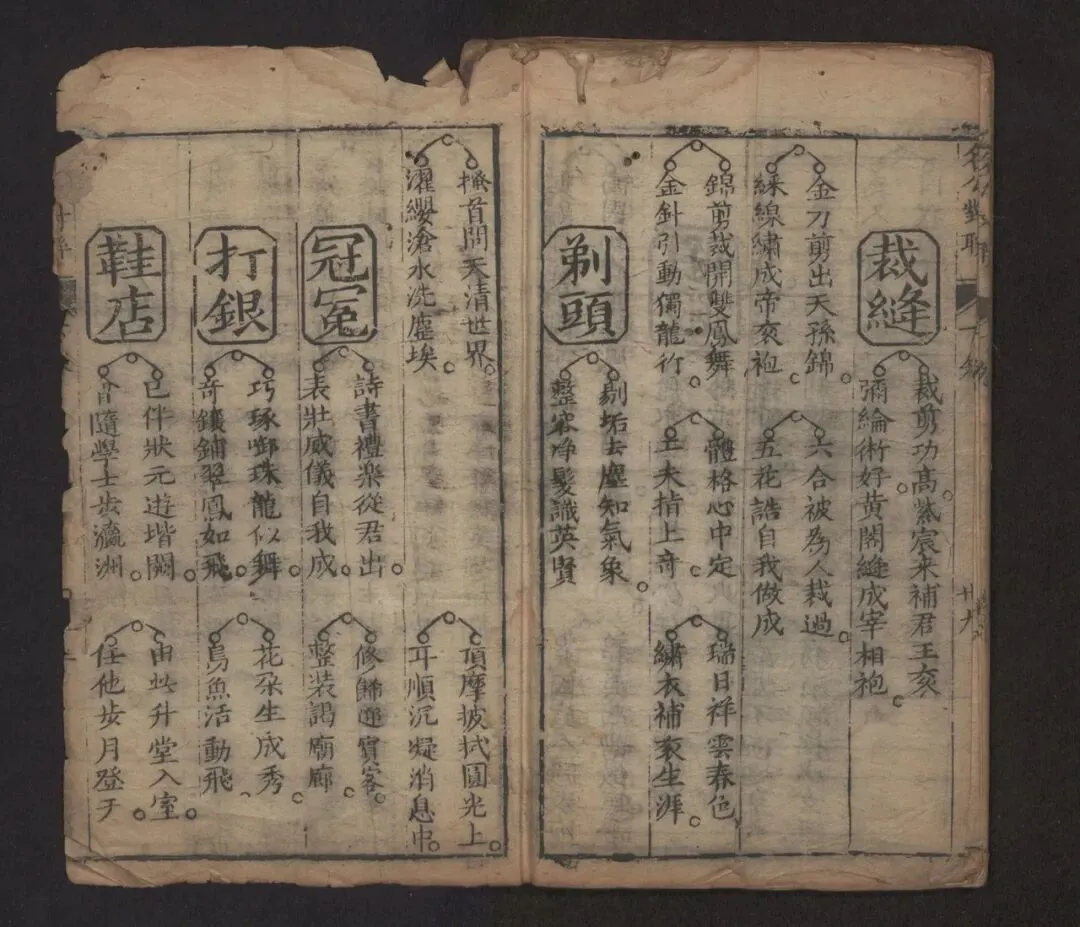 裁縫
裁剪功高紫宸来補君王衮
彌綸術好黄閣縫成宰相袍
金刀剪出天孫錦
綵線繡成帝衮袍
六合被為人裁過
五花誥自我做成
錦剪裁開雙鳳舞
金針引動獨龍行
體格心中定
工夫指上奇
瑞日祥雲春色
繡衣補衮生涯
剃頭
剔垢去塵知氣象
整容净髮識英賢
搔首問天清世界
濯纓滄水洗塵埃
頂摩披拭圓光上
耳順沉凝消息中
冠冕
詩書禮樂從君出
表壯威儀自我成
修飾迎賓客
整装謁廟廊
打銀
巧琢啣珠龍似舞
奇鑲鋪翠鳳如飛
花朶生成秀
鳥魚活動飛
鞋店
已伴狀元遊堦闕
曾隨學士步瀛洲
由此升堂入室
任他步月登天
對聯
廿九